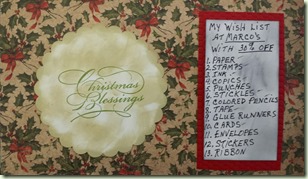 Christmas
Blessings
MY WISH LIST
AT MARCO'S
WITH 30% OFF
1. PAPER
2. STAMPS
3. INK
4. COPICS
5. PUNCHES
6. STICKLES
7. COLORED PENCILS
8. TAPE
9. GLUE RUNNERS
10. CARDS
11. ENVELOPES
12. STICKERS
13. RIBBON